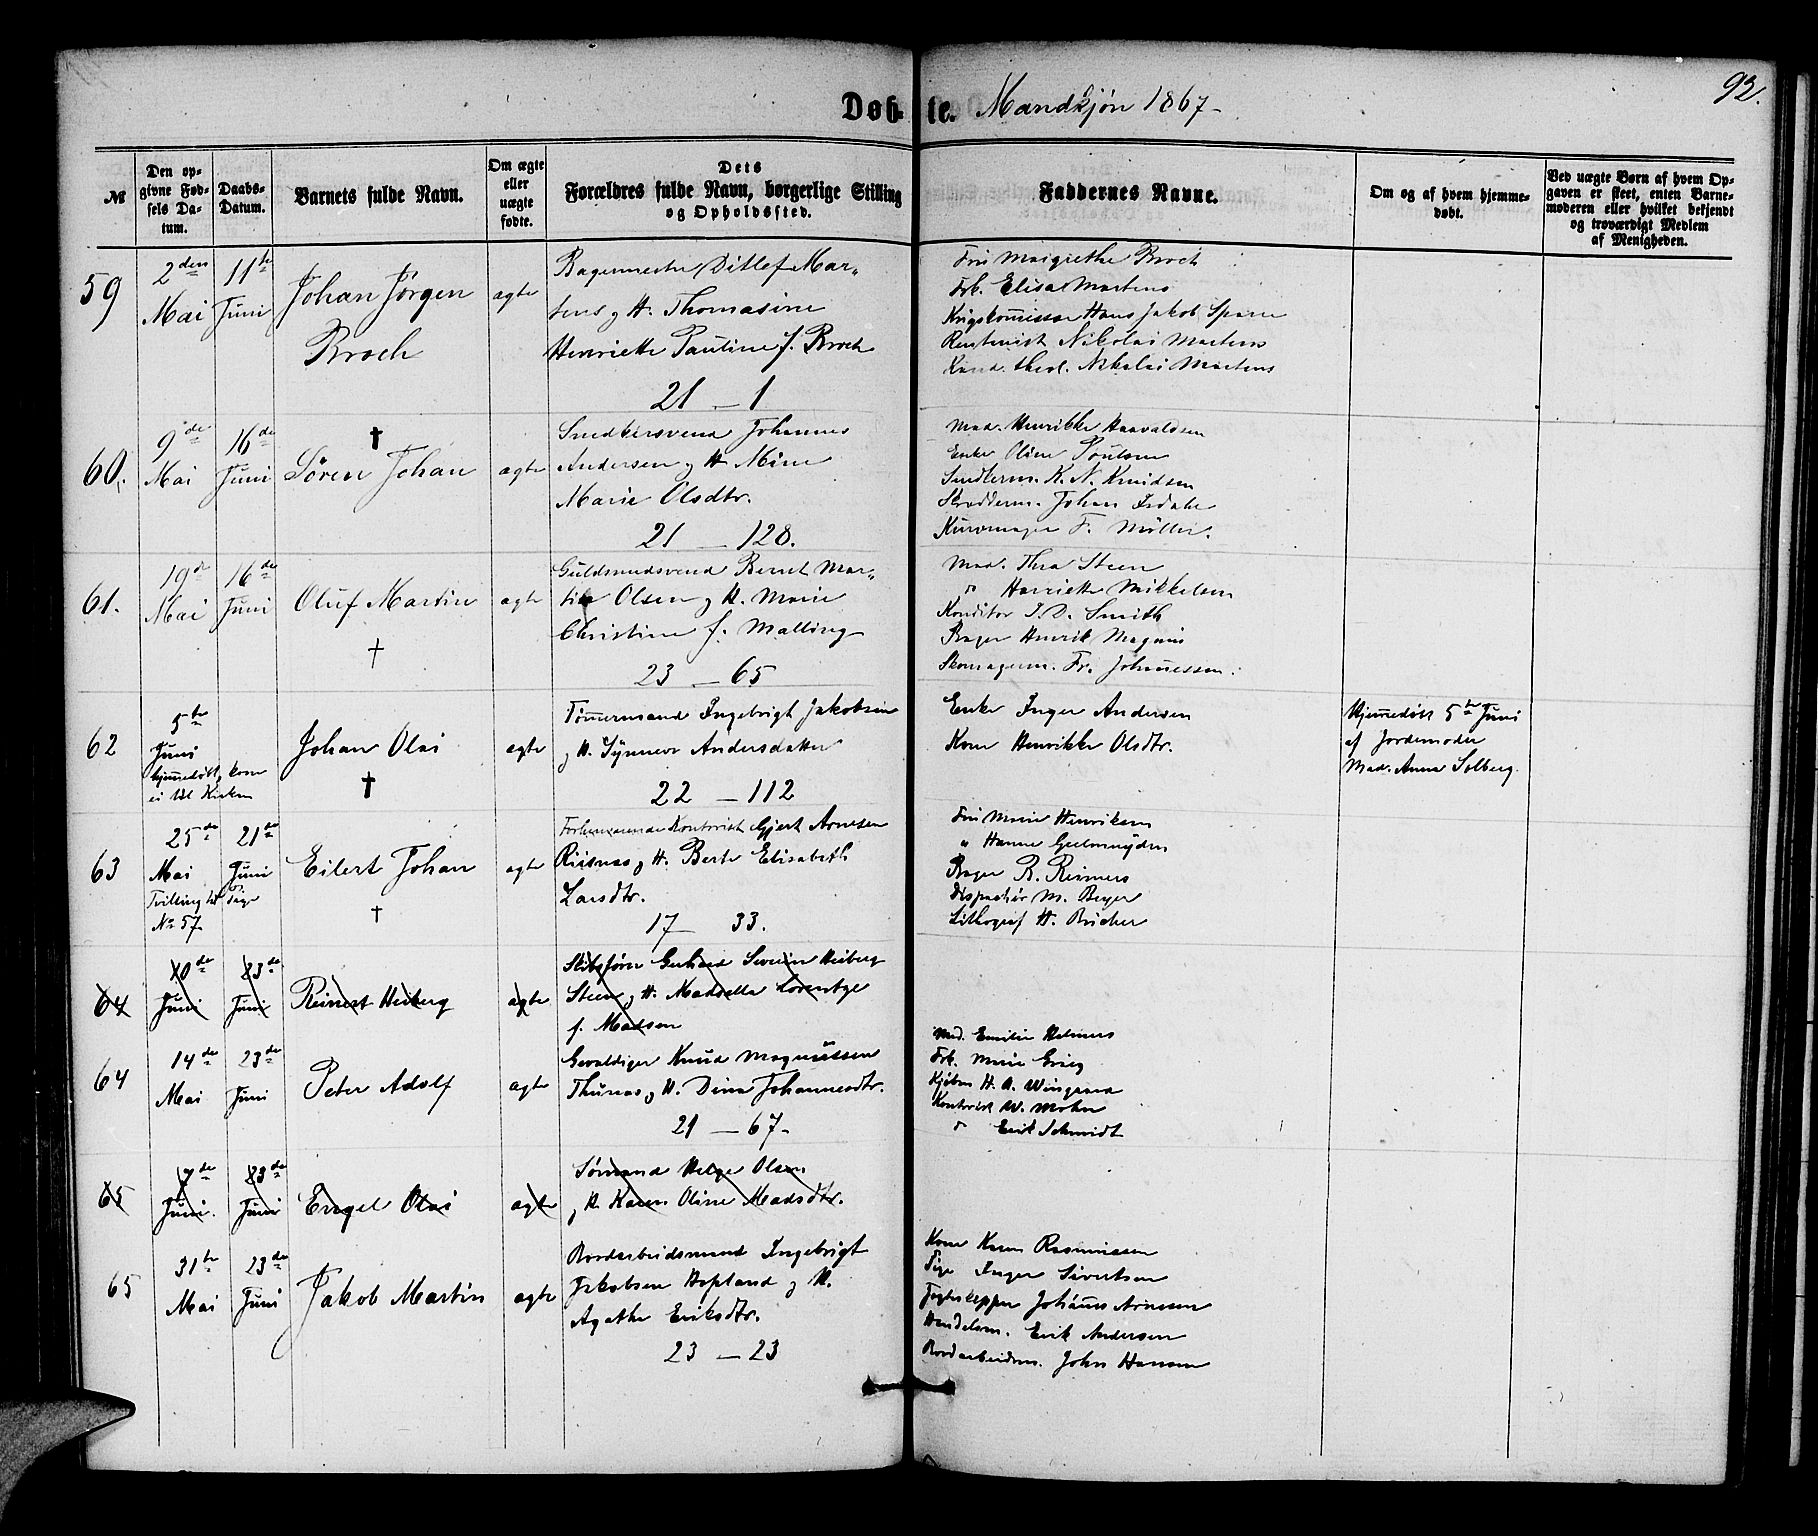 Døbte. Mandkjøn 1867-
92.
№
Den opgivne Fødsels Datum.
Daabs-Datum.
Barnets fulde Navn.
Om ægte eller uægte fødte.
Dets Forældres fulde Navn, borgerlige Stilling og Opholdssted.
Faddernes Navne.
Om og af hvem hjemmedøbt.
Ved uægte Børn af hvem Opgaven er skeet, enten Barnemoderen eller hvilket bekjendt og troværdigt Medlem af Menigheden.
59
2den Mai
11te Juni
Johan Jörgen
Broch
ægte
Bagermester Ditlef Mar-
tens og H. Thomasine
Henriette Pauline f. Broch
21 — 1
Fru Margrethe Broch
Frk. Elisa Martens
Krigskommissær Hans Jakob Sparre
Rentenist Nikolai Martens
Kand. theol. Nikolai Martens
60.
9de Mai
16de Juni
†
Sören Johan
ægte
Snedkersvend Johannes
Andersen og H. Mine
Marie Olsdtr.
21 — 128.
Mad. Henrikke Haavaldsen
Enke Oline Poulsen
Snedkerm. K. N. Knudsen
Skrædderm. Johan Isdahl
Kurvmager F. Müller.
61.
19de Mai
16de Juni
Oluf Martin
†
ægte
Guldsmedsvend Bernt Mar-
tin Olsen og H. Marie
Christine f. Malling
23 — 65
Mad. Thea Steen
do Henriette Mikkelsen
Konditor J. D. Smith
Bager Henrik Magnus
Skomagerm. Fr. Johannessen.
62
5te Juni
hjemmedöbt, kom
ei til Kirken
Johan Olai
†
ægte
Tömmermand Ingebrigt Jakobsen
og H. Synneve Andersdatter
22 — 112
Enke Inger Andersen
Kone Henrikke Olsdtr.
Hjemmedöbt 5te Juni
af Jordemoder
Mad. Anna Solberg.
63
25de Mai
Tvilling til
No 57.
21de Juni
Eilert Johan
†
ægte
Forhenværende Kontorist Gjert Arnesen
Riisnæs og H. Berte Elisabeth
Larsdtr.
17 — 33.
Fru Marie Henriksen
" Hanne Geelmuyden
Bager R. Reimers
Dispachör M. Beyer
Lithograf H. Bücher
64
10de Juni
23de Juni
Reinert Heiberg
ægte
Skibsförer Gerhard Severin Heiberg
Steen og H. Madsella Lorentze
f. Madsen
64
14de Mai
23de Juni
Peter Adolf
ægte
Gevaldiger Knud Magnussen
Thunæs og H. Dina Johannesdtr.
21 — 67-
Mad. Emilie Helmers
Frk. Marie Grieg
Kjöbm H. A. Wingaard
Kontorist W. Mohn
do Erik Schmidt
65
7de Juni.
23de Juni
Engel Olai
ægte
Sömand Helge Olsen
og H. Karen Oline Madsdtr.
65
31te Mai
23de Juni
Jakob Martin
ægte
Bordarbeidsmand Ingebrigt
Jakobsen Hopland og H.
Agathe Eriksdtr.
23 — 23
Kone Karen Rasmussen
Pige Inger Sivertsen
Johannes Arnesen
Handelsm. Erik Andersen
Bordarbeidsm. John Hansen